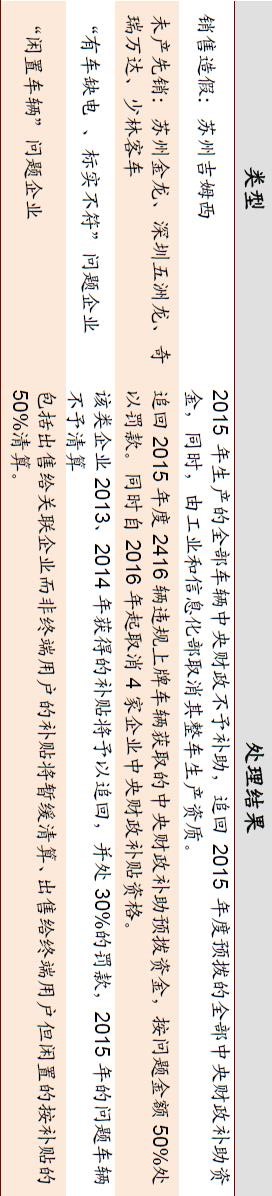 类型
处理结果
销售造假：苏州吉姆西
2015 年生产的全部车辆中央财政不予补助，追回 2015 年度预拨的全部中央财政补助资
金，同时，由工业和信息化部取消其整车生产资质。
未产先销：苏州金龙、深圳五洲龙、奇
瑞万达、少林客车
追回 2015 年度 2416 辆违规上牌车辆获取的中央财政补助预拨资金，按问题金额 50%处
以罚款。同时自 2016 年起取消 4 家企业中央财政补贴资格。
“有车缺电、标实不符”问题企业
该类企业 2013、2014 年获得的补贴将予以追回，并处 30%的罚款，2015 年的问题车辆
不予清算
“闲置车辆”问题企业
包括出售给关联企业而非终端用户的补贴将暂缓清算、出售给终端用户但闲置的按补贴的
50%清算。